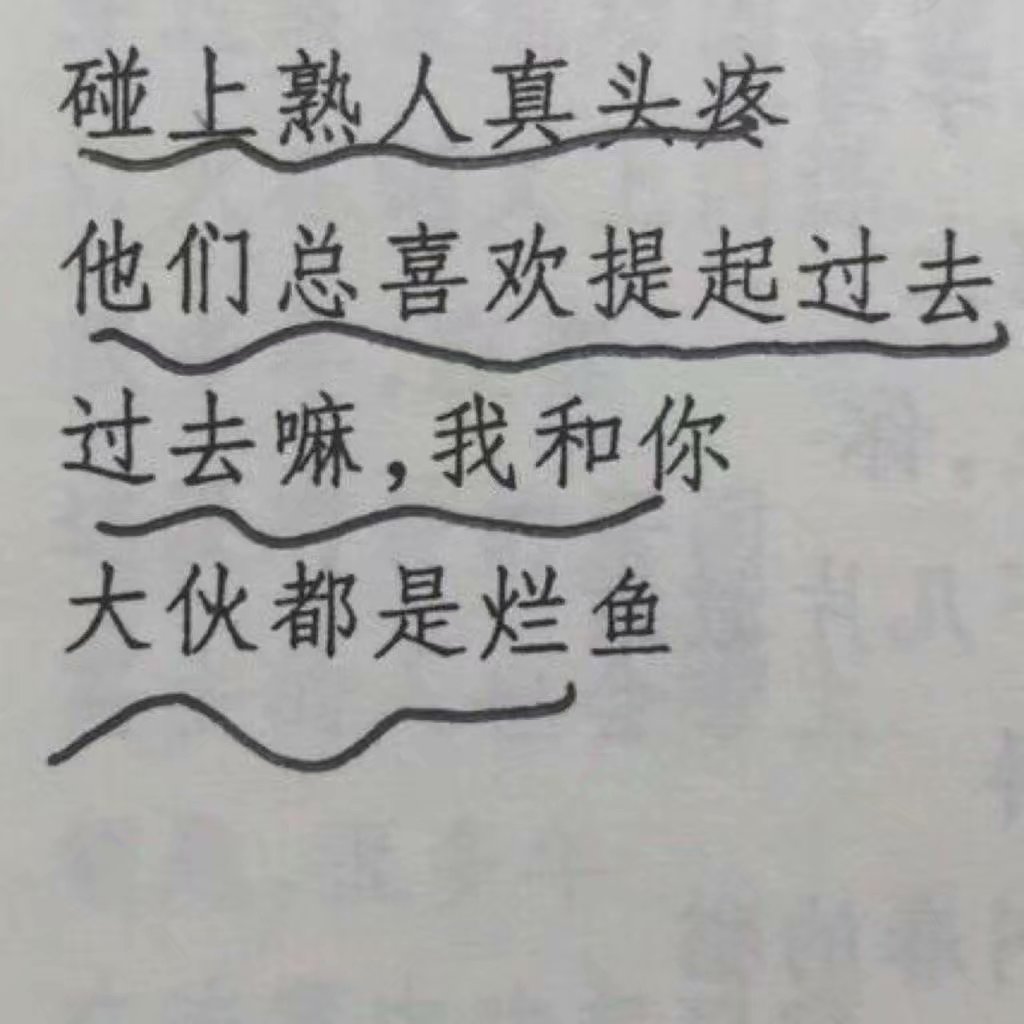 碰上熟人真头疼
他们总喜欢提起过去
过去嘛,我和你
大伙都是烂鱼